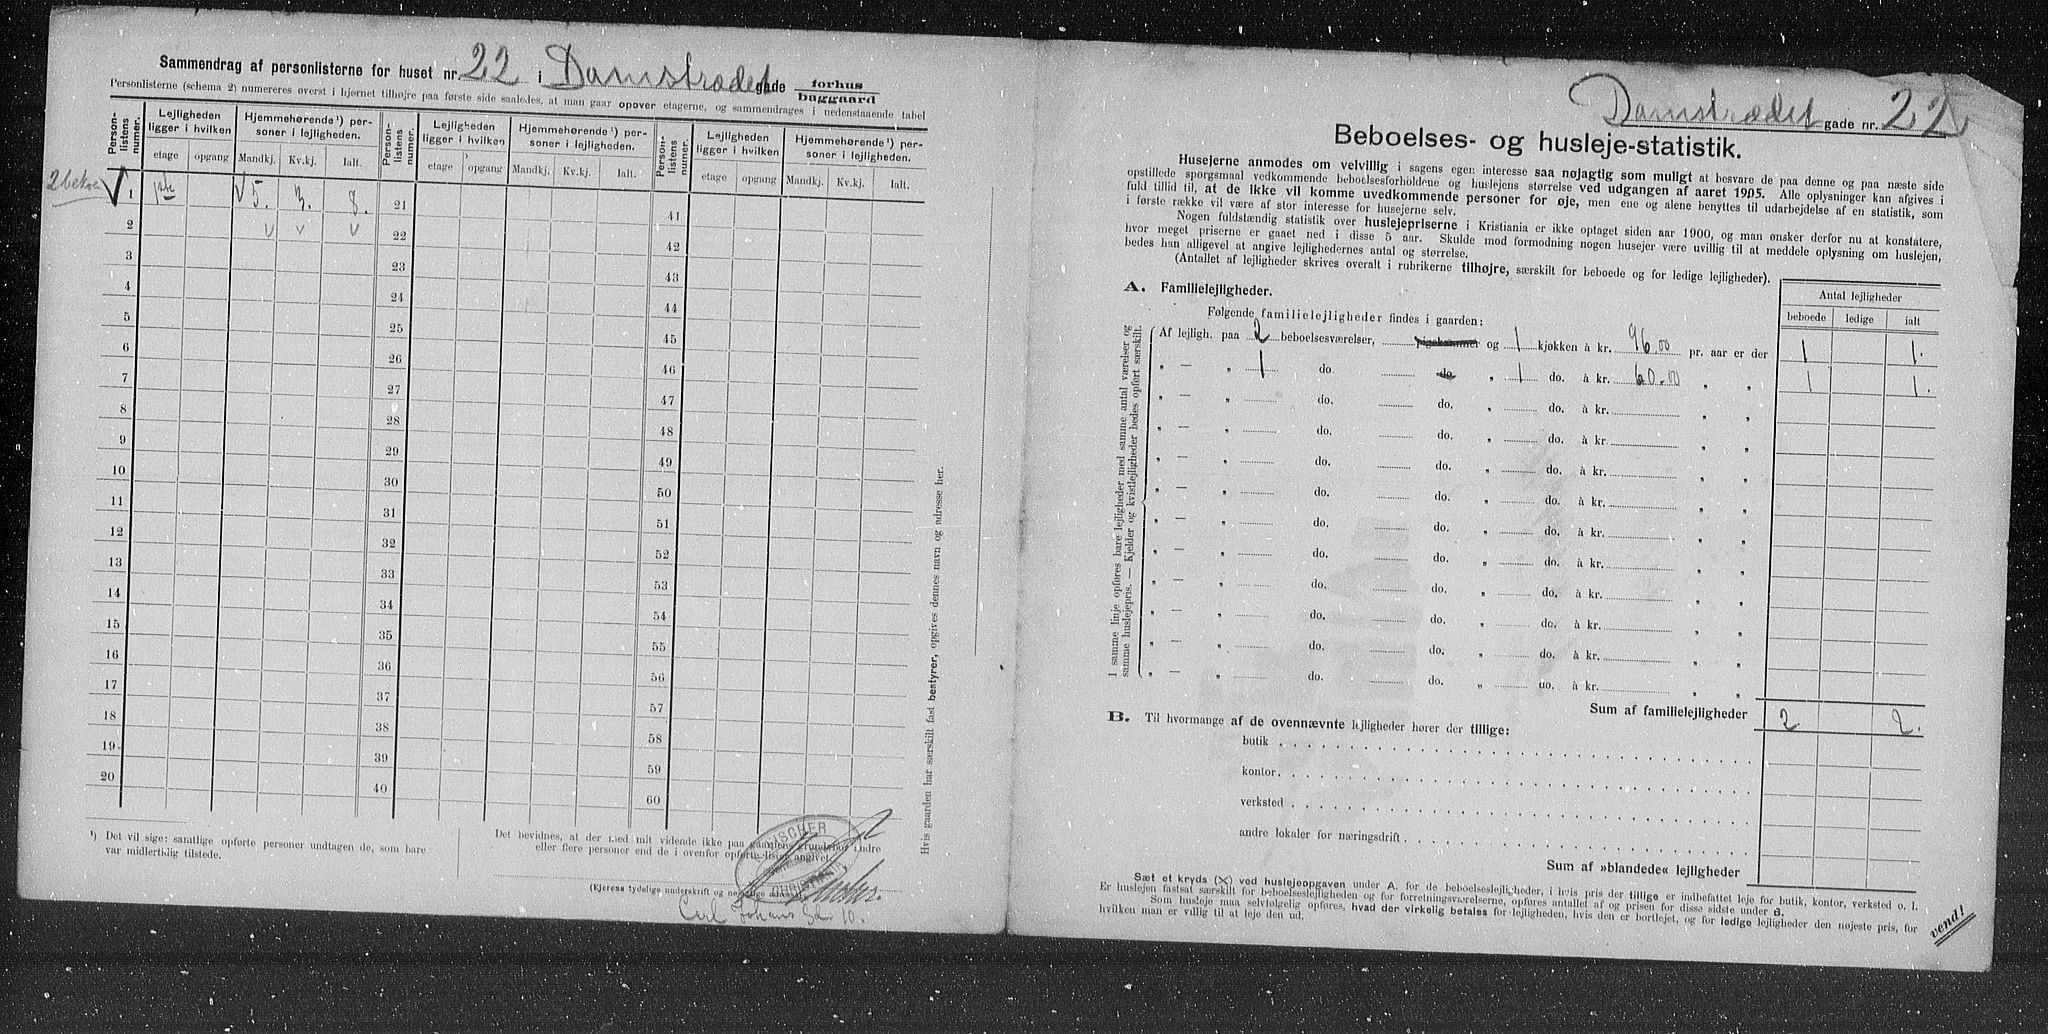 Sammendrag af personlisterne for huset nr. 22 i Damstrædet gade forhus
baggaard
Personlisterne (schema 2) numereres øverst i hjørnet tilhøjre paa første side saaledes, at man gaar opover etagerne, og sammendrages i nedenstaaende tabel
Person-listens numer. Lejligheden ligger i hvilken Hjemmehørende¹) per-soner i lejligheden. Person-listens numer. Lejligheden ligger i hvilken Hjemmehørende¹) per-soner i lejligheden. Person-listens numer. Lejligheden ligger i hvilken Hjemmehørende¹) per-soner i lejligheden.
etage opgang Mandkj. Kv.kj. Ialt. etage opgang Mandkj. Kv.kj. Ialt. etage opgang Mandkj. Kv.kj. Ialt.
1 1ste 5. 3. 8. 21 41
2 22 42
3 23 43
4 24 44
5 25 45
6 26 46
7 27 47
8 28 48
9 29 49
10 30 50
11 31 51
12 32 52
13 33 53
14 34 54
15 35 55
16 36 56
17 37 57
18 38 58
19 39 59
20 40 60
¹) Det vil sige: samtlige opførte personer undtagen de, som bare
var midlertidig tilstede.
Det bevidnes, at der med mit vidende ikke paa gaardens grund bor andre
eller flere personer end de i ovenfor opførte lister angivet.
FISCHER
CHRISTIANIA
(Ejerens tydelige underskrift og nøjagtige adresse)
Carl Johans Gd. 10.
Hvis gaarden har særskilt fast bestyrer, opgives dennes navn og adresse her.
Damstrædet gade nr. 22
Beboelses- og husleje-statistik.
Husejerne anmodes om velvillig i sagens egen interesse saa nøjagtig som muligt at besvare de paa denne og paa næste side
opstillede spørgsmaal vedkommende beboelsesforholdene og huslejens størrelse ved udgangen af aaret 1905. Alle oplysninger kan afgives i
fuld tillid til, at de ikke vil komme uvedkommende personer for øje, men ene og alene benyttes til udarbejdelse af en statistik, som
i første række vil være af stor interesse for husejerne selv.
Nogen fuldstændig statistik over huslejepriserne i Kristiania er ikke optaget siden aar 1900, og man ønsker derfor nu at konstatere,
hvor meget priserne er gaaet ned i disse 5 aar. Skulde mod formodning nogen husejer være uvillig til at meddele oplysning om huslejen,
bedes han alligevel at angive lejlighedernes antal og størrelse.
(Antallet af lejligheder skrives overalt i rubrikerne tilhøjre, særskilt for beboede og for ledige lejligheder).
A. Familielejligheder.
Antal lejligheder
Følgende familielejligheder findes i gaarden:
beboede ledige ialt
Af lejligh. paa 2 beboelsesværelser, pigekammer og 1 kjøkken à kr. 96.00 pr. aar er der 1 1.
„ — „ 1 do. do. „ 1 do. à kr. 60.00 „ „ 1 1.
„ — „ do. do. „ do. à kr. „ „
„ — „ do. do. „ do. à kr. „ „
„ — „ do. do. „ do. à kr. „ „
„ — „ do. do. „ do. à kr. „ „
„ — „ do. do. „ do. à kr. „ „
„ — „ do. do. „ do. à kr. „ „
„ — „ do. do. „ do. à kr. „ „
„ — „ do. do. „ do. à kr. „ „
„ — „ do. do. „ do. à kr. „ „
„ — „ do. do. „ do. à kr. „ „
I samme linje opføres bare lejligheder med samme antal værelser og
samme huslejepris. — Kjelder og kvistlejligheder bedes opført særskilt.
Sum af familielejligheder 2 2.
B. Til hvormange af de ovennævnte lejligheder hører der tillige:
butik
kontor
verksted
andre lokaler for næringsdrift
Sum af »blandede« lejligheder
Sæt et kryds (×) ved huslejeopgaven under A. for de beboelseslejligheder, i hvis pris der tillige er indbefattet leje for butik, kontor, verksted o. l.
Er huslejen fastsat særskilt for beboelseslejligheden og for forretningsværelserne, opføres antallet af og prisen for disse sidste under B.
Som husleje maa selvfølgelig opføres, hvad der virkelig betales for lejligheden, hvis den er bortlejet, og for ledige lejligheder den nøjeste pris, for
hvilken man er villig til at leje den ud.
vend!